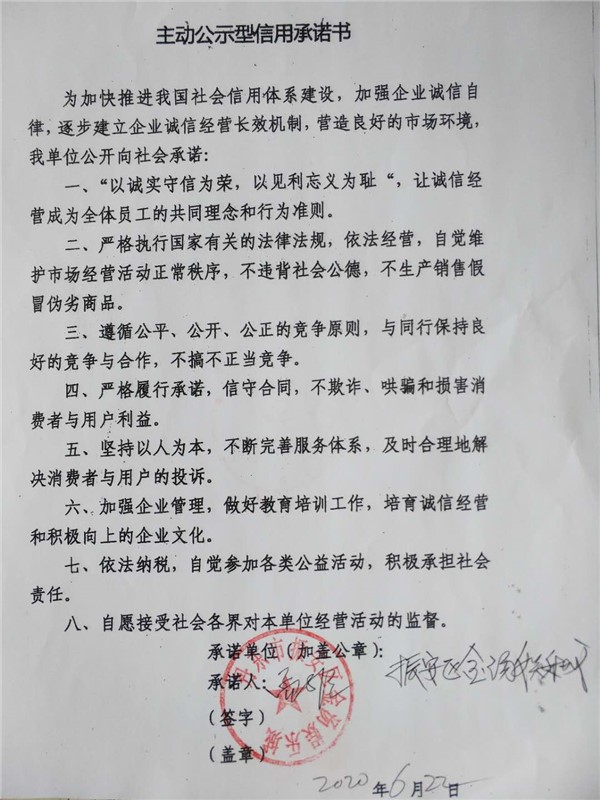 主动公示型信用承诺书
为加快推进我国社会信用体系建设，加强企业诚信自
律，逐步建立企业诚信经营长效机制，营造良好的市场环境，
我单位公开向社会承诺：
一、“以诚实守信为荣，以见利忘义为耻“，让诚信经
营成为全体员工的共同理念和行为准则。
二、严格执行国家有关的法律法规，依法经营，自觉维
护市场经营活动正常秩序，不违背社会公德，不生产销售假
冒伪劣商品。
三、遵循公平、公开、公正的竞争原则，与同行保持良
好的竞争与合作，不搞不正当竞争。
四、严格履行承诺，信守合同，不欺诈、哄骗和损害消
费者与用户利益。
五、坚持以人为本，不断完善服务体系，及时合理地解
决消费者与用户的投诉。
六、加强企业管理，做好教育培训工作，培育诚信经营
和积极向上的企业文化。
七、依法纳税，自觉参加各类公益活动，积极承担社会
责任。
八、自愿接受社会各界对本单位经营活动的监督。
承诺单位（加盖公章）：
振安区金
承诺人：
（签字）
（盖章）
丹东市振安区金 娱乐城
2020年6月22日